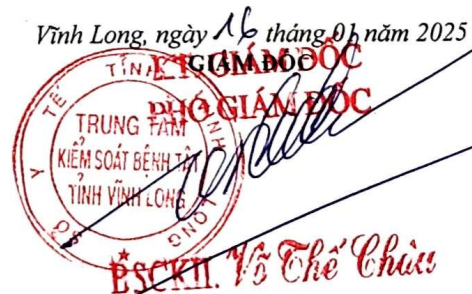 Vĩnh Long, ngày 16 tháng 01 năm 2025
GIÁM ĐỐC
KT. GIÁM ĐỐC
PHÓ GIÁM ĐỐC
SỞ Y TẾ TỈNH VĨNH LONG
TRUNG TÂM
KIỂM SOÁT BỆNH TẬT
TỈNH VĨNH LONG
BSCKII. Võ Thế Châu